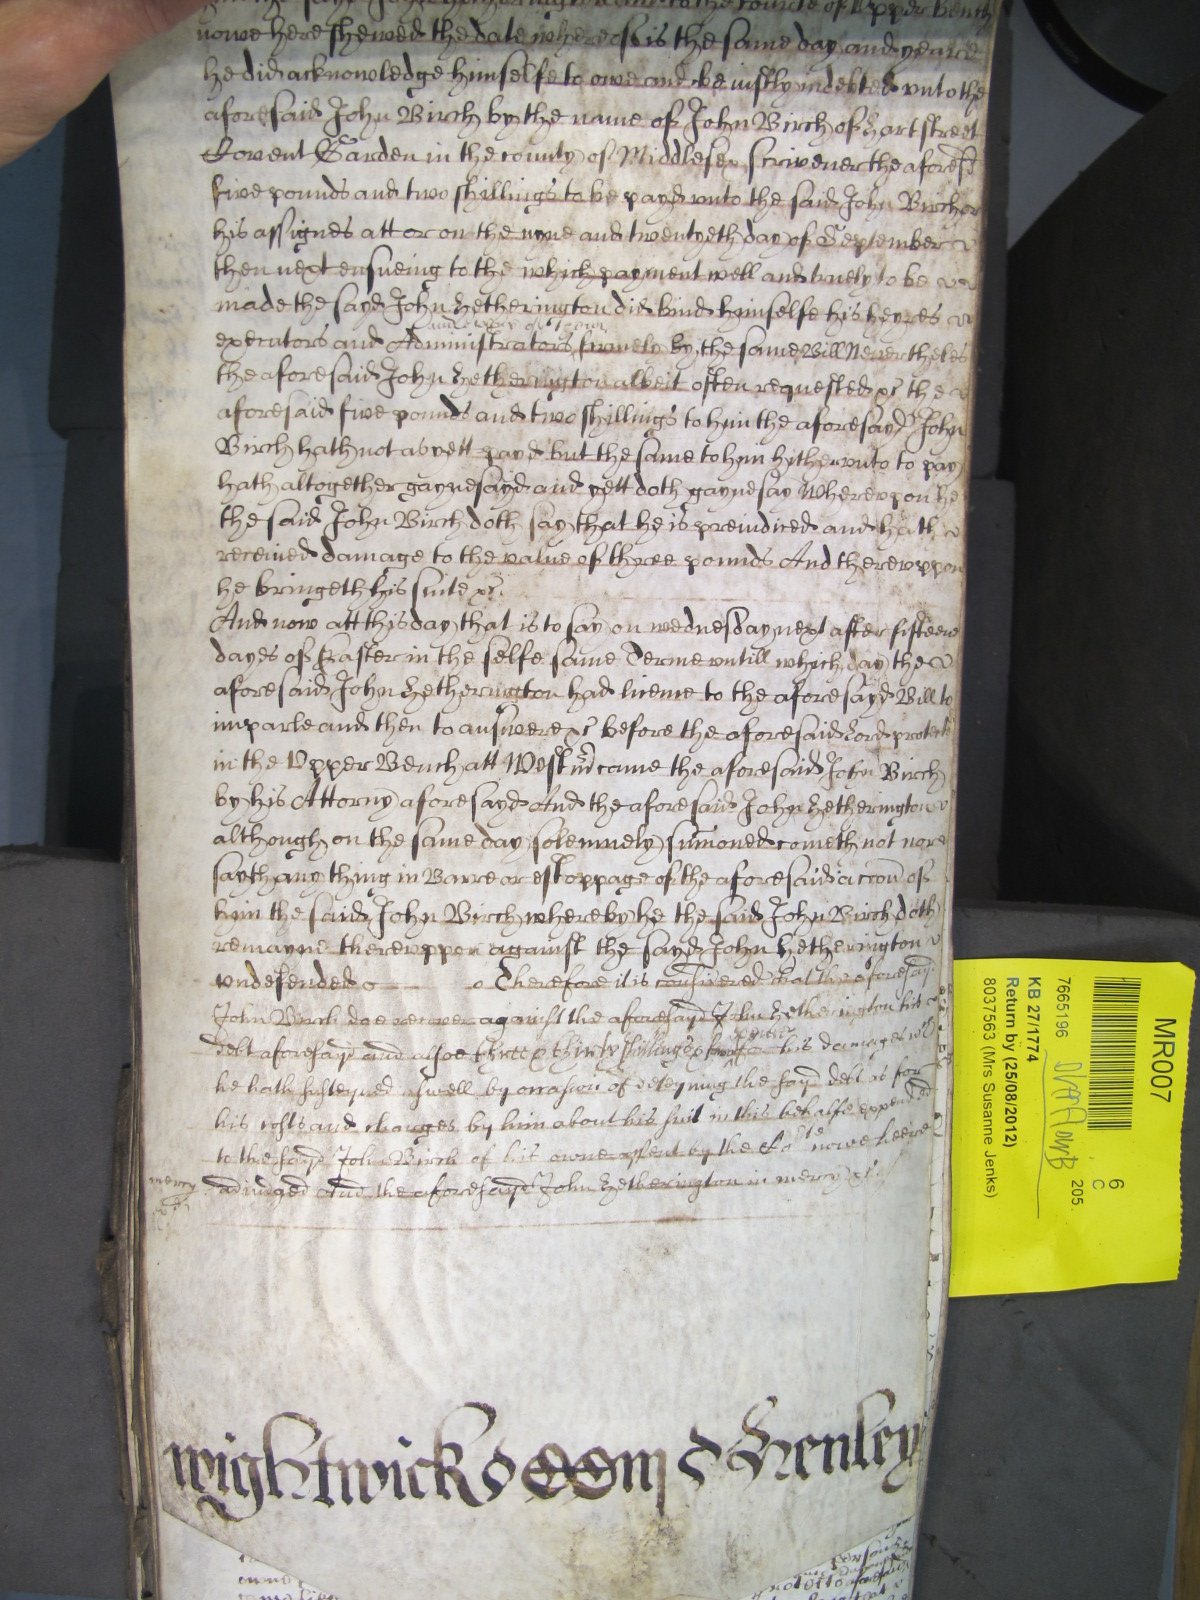 nowe here shewed the date whereof is the same day and yeare
he did acknowledge himselfe to owe and be iustly indebted vnto the
aforesaid John Birch by the name of John Birch of hart street
Covent Garden in the county of Middlesex scrivener the aforesd
five pounds and two shillings to be payd vnto the said John Birch or
his assignes att or on the nyne and twentyeth day of September
then next ensueing to the which payment well and truely to be
made the sayd John Hetherington did bind himselfe his heyres
executors and Administrators firmely by the same Bill Neverthelesse
the aforesaid John Hetherington albeit often requested &c the
aforesaid five pounds and two shillings to him the aforesayd John
Birch hath not as yett payd but the same to him hithervnto to pay
hath altogether gaynesayd and yett doth gaynesay Wherevpon he
the said John Birch doth say that he is preiudiced and hath
received damage to the value of three pounds And therevppon
he bringeth his suite &c.
And now att this day that is to say on wednesday next after fifteene
dayes of Easter in the selfe same Terme vntill which day the
aforesaid John Hetherington had licence to the aforesayd Bill to
imparle and then to answere &c before the aforesaid Lord protector
in the Vpper Bench att Westm came the aforesaid John Birch
by his Attorny aforesayd And the aforesaid John Hetherington
although on the same day solemnely sumoned cometh not nore
sayth any thing in Barre or estoppage of the aforesaid accon of
him the said John Birch whereby he the said John Birch doth
remayne therevppon against the sayd John Hetherington
vndefended Therefore it is considered that the aforesayd
John Birch doe recover against the aforesayd John Hetherington his
debt aforesayd and alsoe thirty shillings for his damages wch
he hath susteyned aswell by occasion of deteyning the sayd debt as for
his costs and charges by him about his suit in this behalfe expended
to the sayd John Birch of his owne assent by the Cot nowe heere
mercy adiudged And the aforesayd John Hetherington in mercy &c.
Wightwick Henley
MR007
6
C
205.
7665196
KB 27/1774
Return by (25/08/2012)
8037563 (Mrs Susanne Jenks)